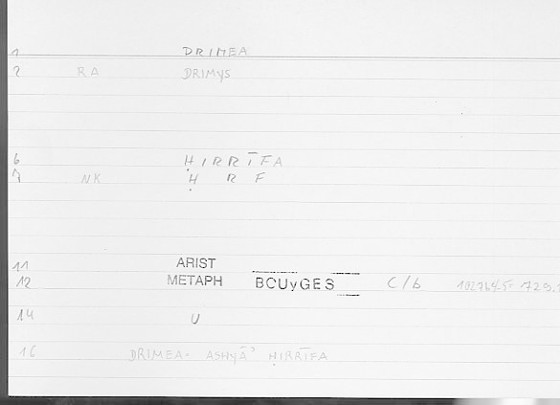 1 DRIMEA
2 RA DRIMYS
6 ḤIRRĪFA
7 NK Ḥ R F
11 ARIST
12 METAPH BCUyGES C/b
14 U
16 DRIMEA- ASHYĀ' ḤIRRĪFA